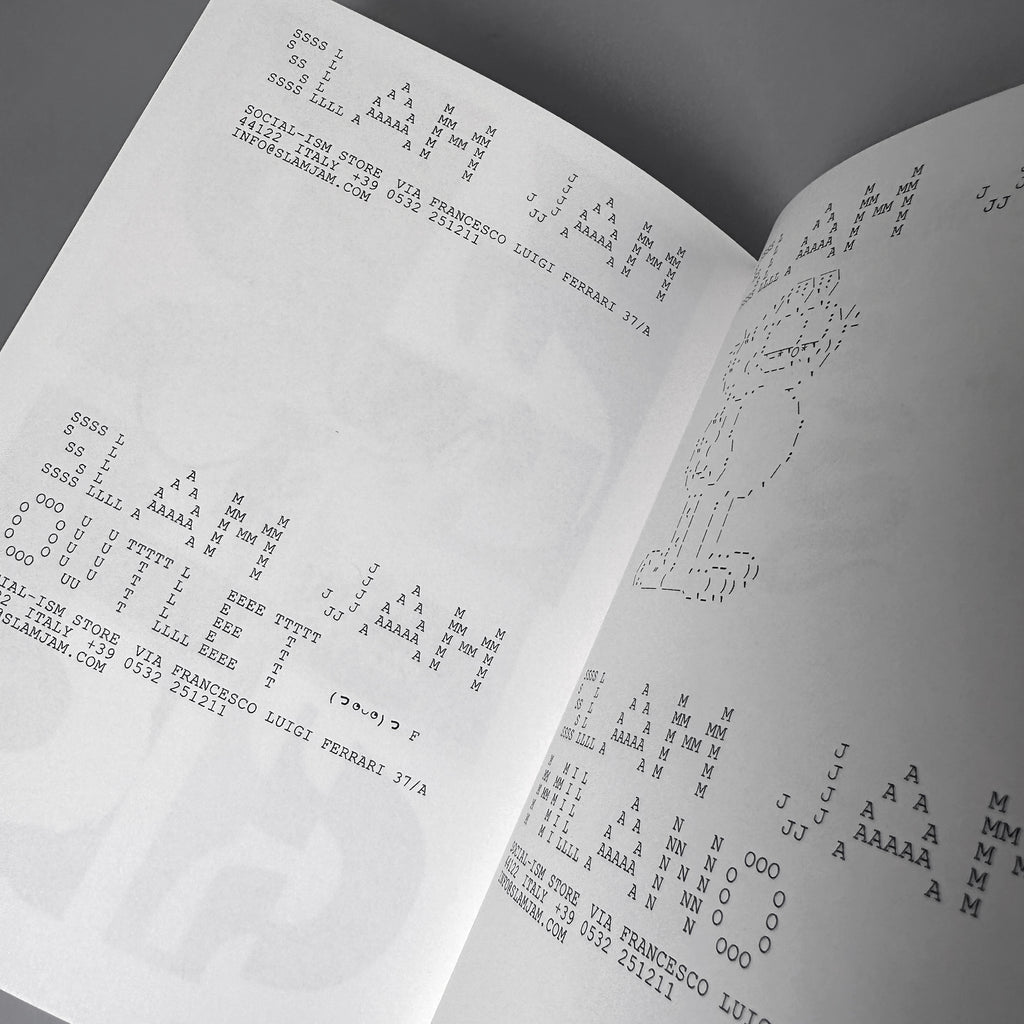 SLAM JAM
SOCIAL-ISM STORE VIA FRANCESCO LUIGI FERRARI 37/A
44122 ITALY +39 0532 251211
INFO@SLAMJAM.COM
SLAM JAM
OUTLET (っ◕‿◕)っ F
IAL-ISM STORE VIA FRANCESCO LUIGI FERRARI 37/A
2 ITALY +39 0532 251211
@SLAMJAM.COM
SLAM J
SLAM JAM
MILANO
SOCIAL-ISM STORE VIA FRANCESCO LUIG
44122 ITALY +39 0532 251211
INFO@SLAMJAM.COM